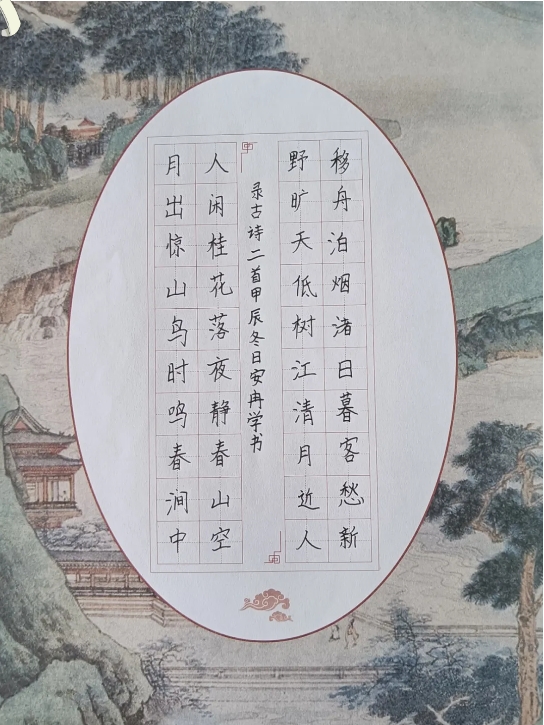 移舟泊烟渚日暮客愁新
野旷天低树江清月近人
录古诗二首甲辰冬日安冉学书
人闲桂花落夜静春山空
月出惊山鸟时鸣春涧中